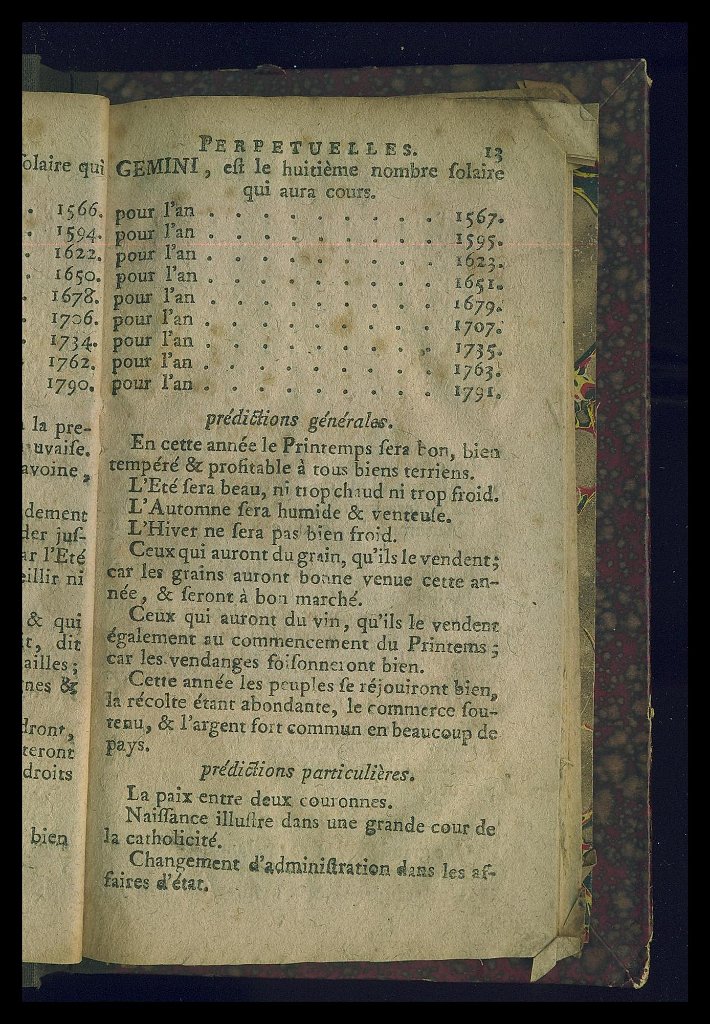 PERPETUELLES. 13
GEMINI, eſt le huitième nombre ſolaire
qui aura cours.
pour l'an . . . . . . . . . 1567.
pour l'an . . . . . . . . . 1595.
pour l'an . . . . . . . . . 1623.
pour l'an . . . . . . . . . 1651.
pour l'an . . . . . . . . . 1679.
pour l'an . . . . . . . . . 1707.
pour l'an . . . . . . . . . 1735.
pour l'an . . . . . . . . . 1763.
pour l'an . . . . . . . . . 1791.
prédictions générales.
En cette année le Printemps ſera bon, bien
tempéré & profitable à tous biens terriens.
L'Eté ſera beau, ni trop chaud ni trop froid.
L'Automne ſera humide & venteuſe.
L'Hiver ne ſera pas bien froid.
Ceux qui auront du grain, qu'ils le vendent;
car les grains auront bonne venue cette an-
née, & ſeront à bon marché.
Ceux qui auront du vin, qu'ils le vendent
également au commencement du Printems;
car les vendanges foiſonneront bien.
Cette année les peuples ſe réjouiront bien,
la récolte étant abondante, le commerce ſou-
tenu, & l'argent fort commun en beaucoup de
pays.
prédictions particulières.
La paix entre deux couronnes.
Naiſſance illuſtre dans une grande cour de
la catholicité.
Changement d'adminiſtration dans les af-
faires d'état.
ſolaire qui
. 1566.
. 1594.
. 1622.
. 1650.
1678.
1706.
1734.
1762.
1790.
la pre-
uvaiſe.
avoine,
dement
der juſ-
ar l'Eté
eillir ni
& qui
t, dit
ailles;
nes &
dront,
teront
droits
bien